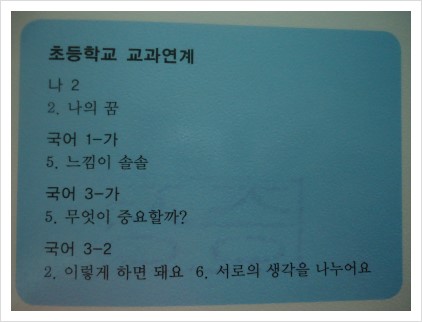 초등학교 교과연계
나 2
2. 나의 꿈
국어 1-가
5. 느낌이 솔솔
국어 3-가
5. 무엇이 중요할까?
국어 3-2
2. 이렇게 하면 돼요 6. 서로의 생각을 나누어요